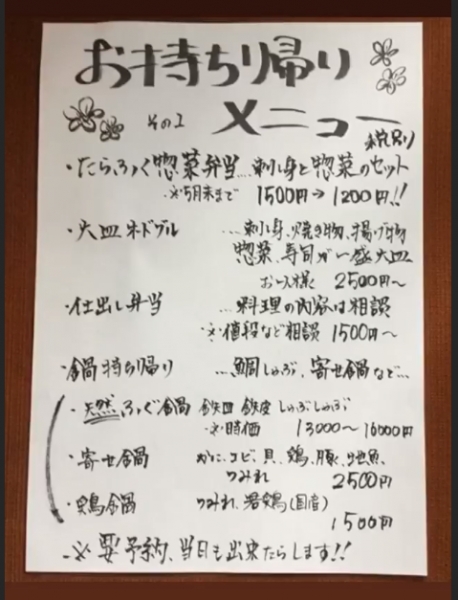 お持ち帰り
その1 メニュー
税別
・たらふく惣菜弁当…刺し身と惣菜のセット
※5月末まで 1500円→1200円!!
・大皿オードブル …刺し身、焼き物、揚げ物
惣菜、寿司が一盛大皿
お一人様 2500円～
・仕出し弁当 …料理の内容は相談
※値段など相談 1500円～
・鍋持ち帰り …鯛しゃぶ、寄せ鍋など…
・天然ふぐ鍋 鉄皿 鉄皮 しゃぶしゃぶ
※時価 13000～16000円
・寄せ鍋 かに、エビ、貝、鶏、豚、地魚、
つみれ 2500円
・鶏鍋 つみれ、若鶏(国産)
1500円
※要予約、当日も出来たらします!!